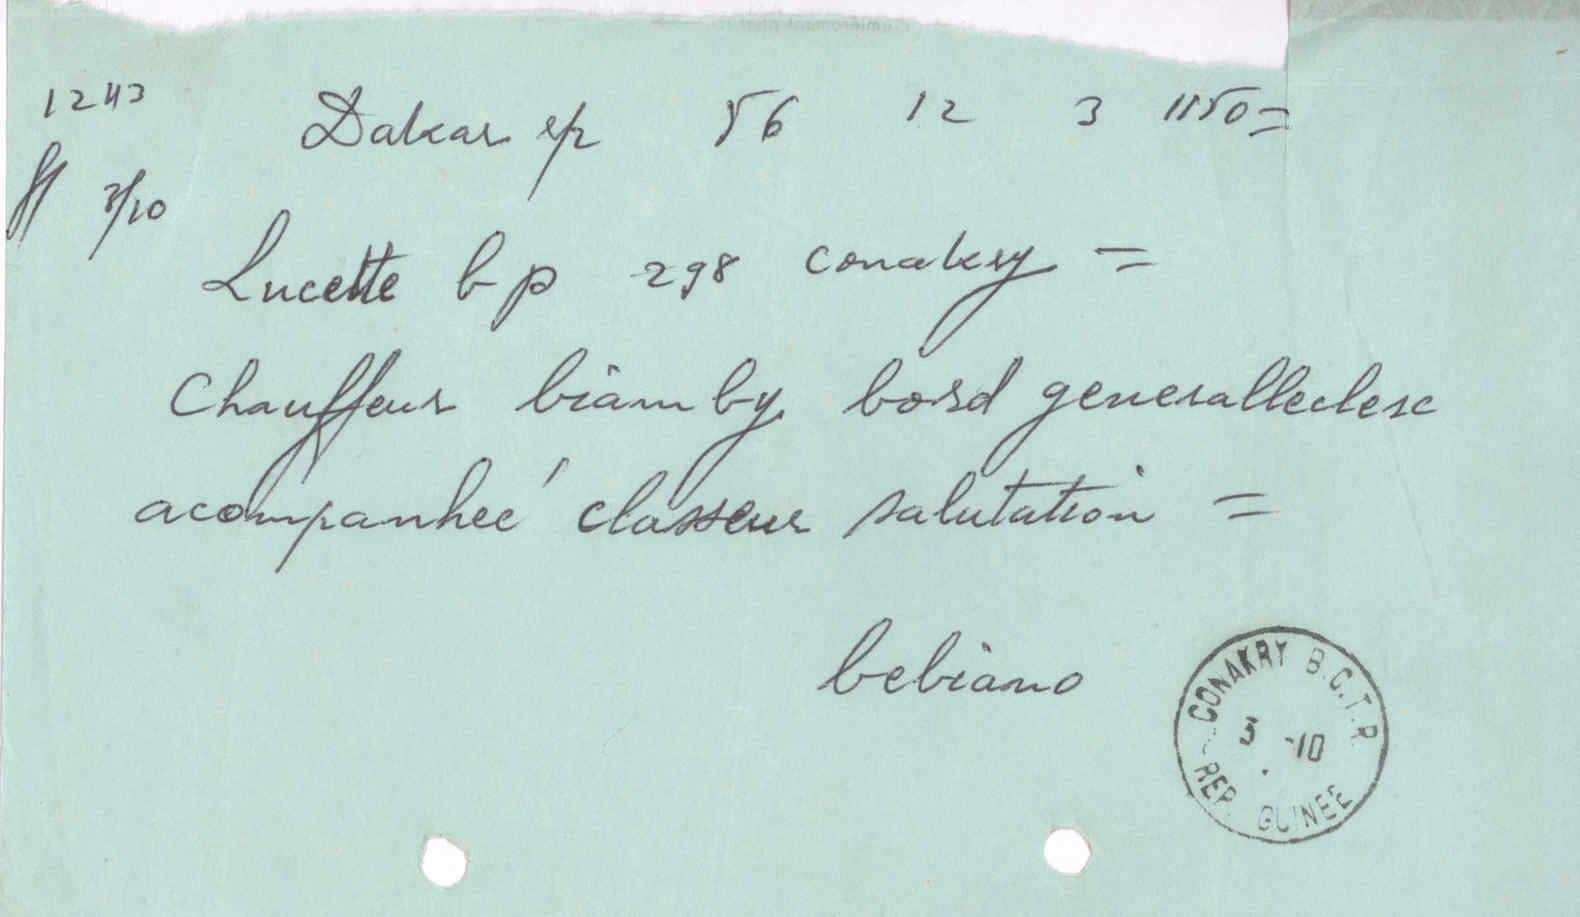 1243
Dakar sp 56 12 3 1150=
3/10
Lucette bp 298 conakry =
Chauffeur biamby bord generalleclerc
acompanheé classeur salutation =
bebiano
CONAKRY B.C.T.R
3 -10
REP. GUINEE